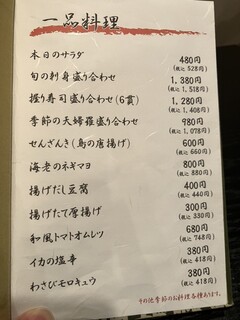 一品料理
本日のサラダ 480円
(税込 528円)
旬の刺身盛り合わせ 1,380円
(税込 1,518円)
握り寿司盛り合わせ(6貫) 1,280円
(税込 1,408円)
季節の天婦羅盛り合わせ 980円
(税込 1,078円)
せんざんき(鳥の唐揚げ) 600円
(税込 660円)
海老のネギマヨ 800円
(税込 880円)
揚げだし豆腐 400円
(税込 440円)
揚げたて厚揚げ 300円
(税込 330円)
和風トマトオムレツ 680円
(税込 748円)
イカの塩辛 380円
(税込 418円)
わさびモロキュウ 380円
(税込 418円)
その他季節のお料理各種あります。